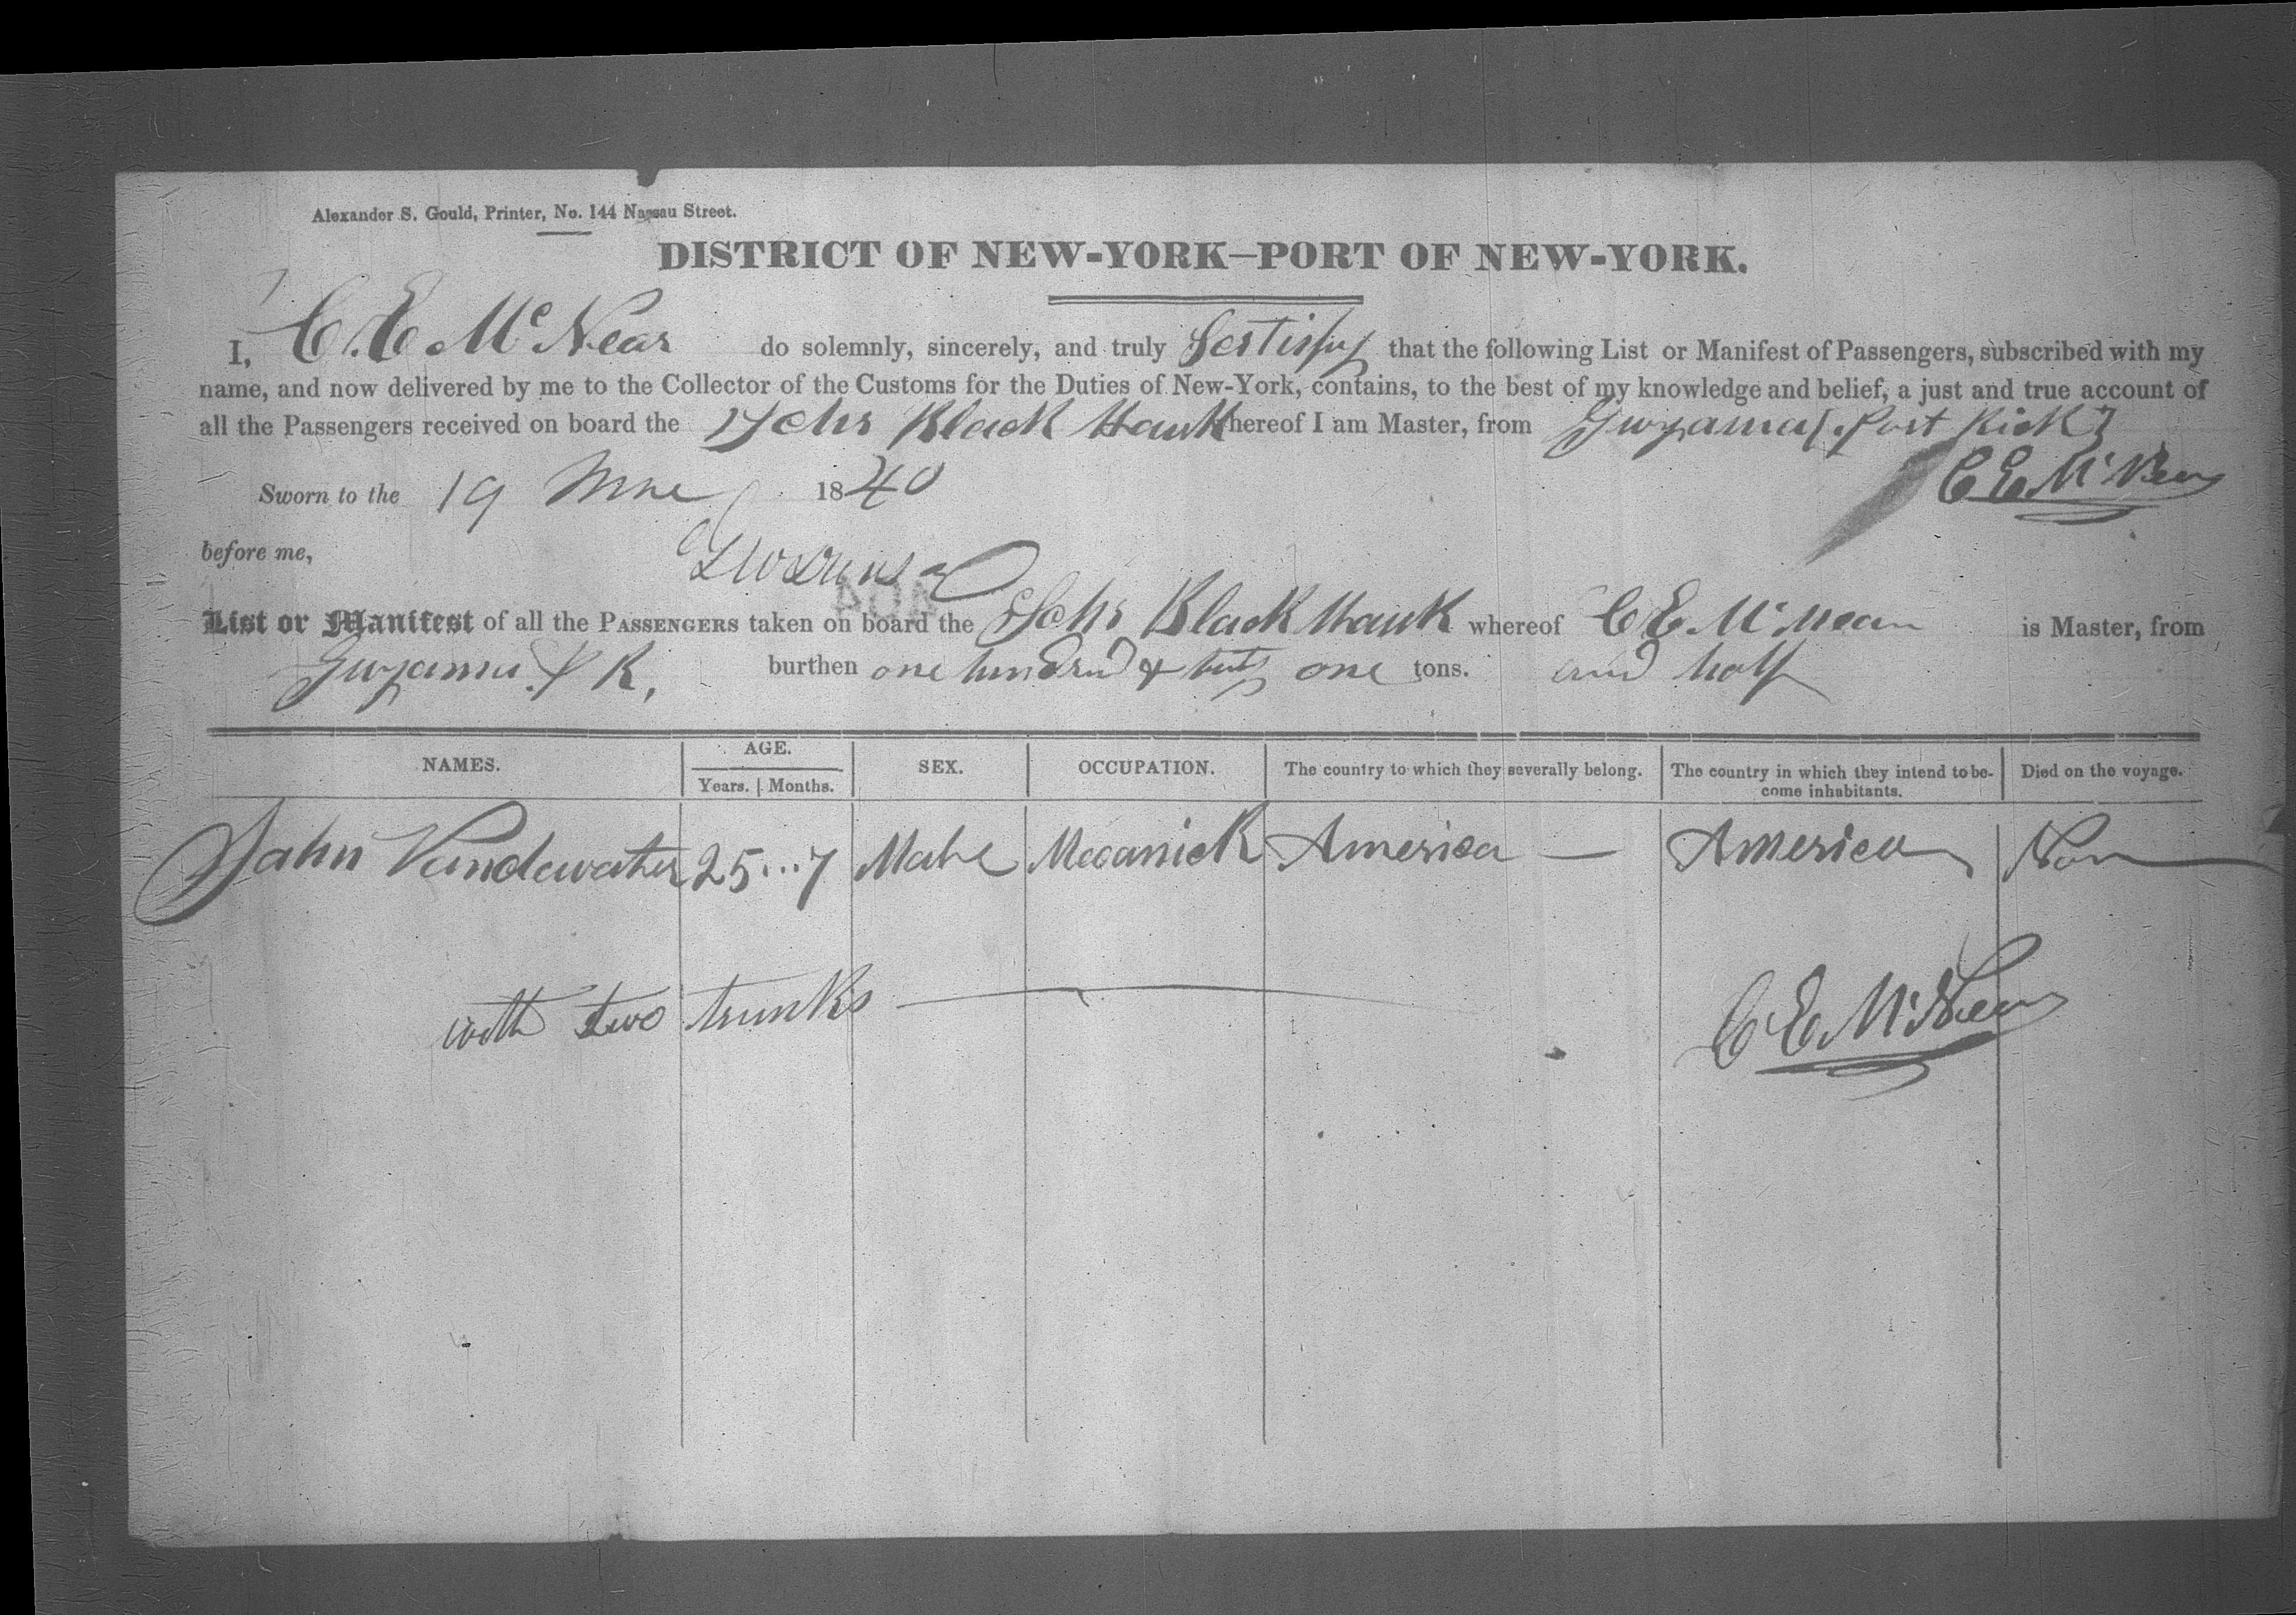 Alexander S. Gould, Printer, No. 144 Nassau Street.
DISTRICT OF NEW-YORK—PORT OF NEW-YORK.
I, C. E. McNear do solemnly, sincerely, and truly Certify that the following List or Manifest of Passengers, subscribed with my
name, and now delivered by me to the Collector of the Customs for the Duties of New-York, contains, to the best of my knowledge and belief, a just and true account of
all the Passengers received on board the Schr Black Hawk hereof I am Master, from Guyama
C E McNear
Sworn to the 19 1840
before me,
404
List or Manifest of all the PASSENGERS taken on board the Schr Black Hawk whereof C E McNear is Master, from
Guyama P R, burthen one hundred & one tons. and half
NAMES. AGE. Years. Months. SEX. OCCUPATION. The country to which they severally belong. The country in which they intend to become inhabitants. Died on the voyage.
John Vandewater 25...7 Male Mecanick America — America Non
with two trunks
C E McNear